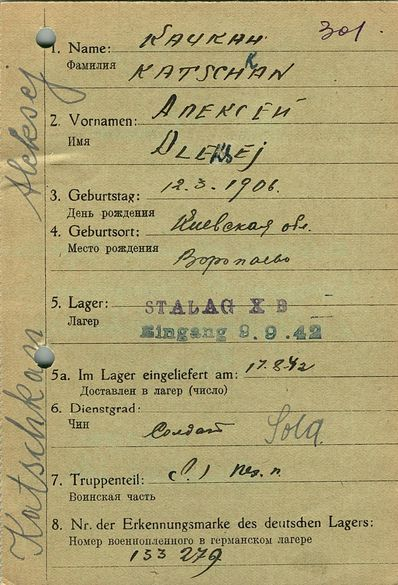 301.
1. Name: КАЧКАН
Фамилия KATSCHKAN
2. Vornamen: АЛЕКСЕЙ
Имя ALEKSEj
3. Geburtstag: 12.3.1906.
День рождения
4. Geburtsort: Киевская обл.
Место рождения
Воропаево
5. Lager: STALAG X B
Лагер Eingang 9.9.42
5a. Im Lager eingeliefert am: 17.8.42
Доставлен в лагер (число)
6. Dienstgrad:
Чин Солдат Sold.
7. Truppenteil:
Воинская часть
8. Nr. der Erkennungsmarke des deutschen Lagers:
Номер военнопленного в германском лагере
133 279
Katschkan Aleksej